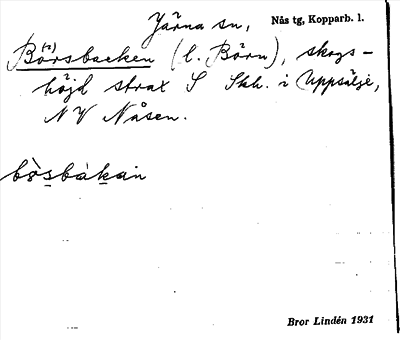 Järna sn, Nås tg, Kopparb. l.
Bo(r)rsbacken (l. Börn), skogs-
höjd strax S Skh. i Uppsälje,
NV Nåsen.
bòsbàkan
Bror Lindén 1931